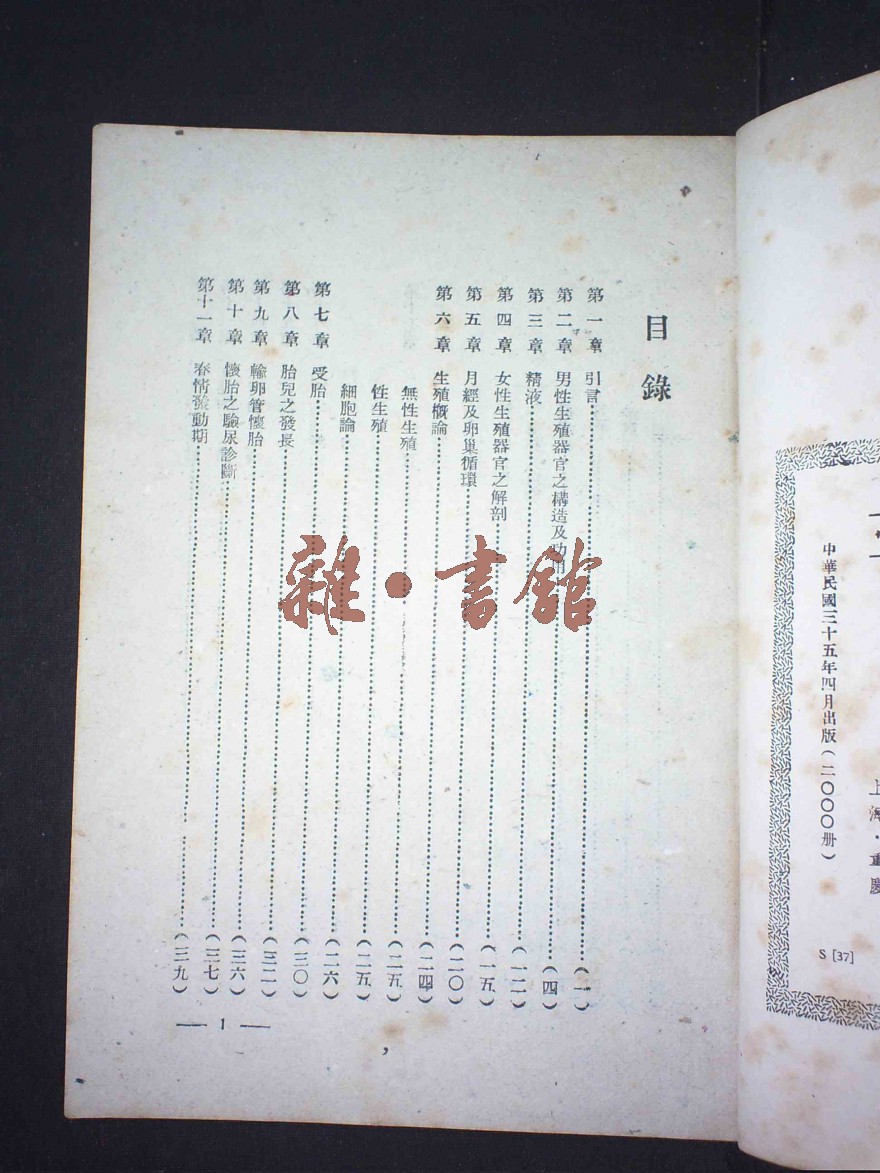 上海·重慶
中華民國三十五年四月出版(二〇〇〇册)
S [37]
目錄
第一章 引言……(一)
第二章 男性生殖器官之構造及功用……(四)
第三章 精液……(一二)
第四章 女性生殖器官之解剖……(一五)
第五章 月經及卵巢循環……(二〇)
第六章 生殖概論……(二四)
無性生殖……(二五)
性生殖……(二五)
細胞論……(二六)
第七章 受胎……(三〇)
第八章 胎兒之發長……(三二)
第九章 輸卵管懷胎……(三六)
第十章 懷胎之驗尿診斷……(三七)
第十一章 春情發動期……(三九)
— 1 —
雜·書館